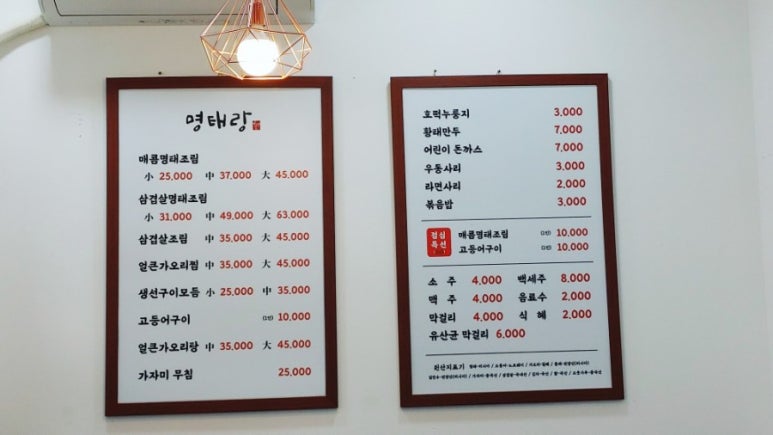 명태랑
매콤명태조림
小 25,000 中 37,000 大 45,000
삼겹살명태조림
小 31,000 中 49,000 大 63,000
삼겹살조림 中 35,000 大 45,000
얼큰가오리찜 中 35,000 大 45,000
생선구이모듬 小 25,000 中 35,000
고등어구이 (1인) 10,000
얼큰가오리탕 中 35,000 大 45,000
가자미 무침 25,000
호떡누룽지 3,000
황태만두 7,000
어린이 돈까스 7,000
우동사리 3,000
라면사리 2,000
볶음밥 3,000
점심특선
매콤명태조림 (1인) 10,000
고등어구이 (1인) 10,000
소 주 4,000 백세주 8,000
맥 주 4,000 음료수 2,000
막걸리 4,000 식 혜 2,000
유산균 막걸리 6,000
원산지표기